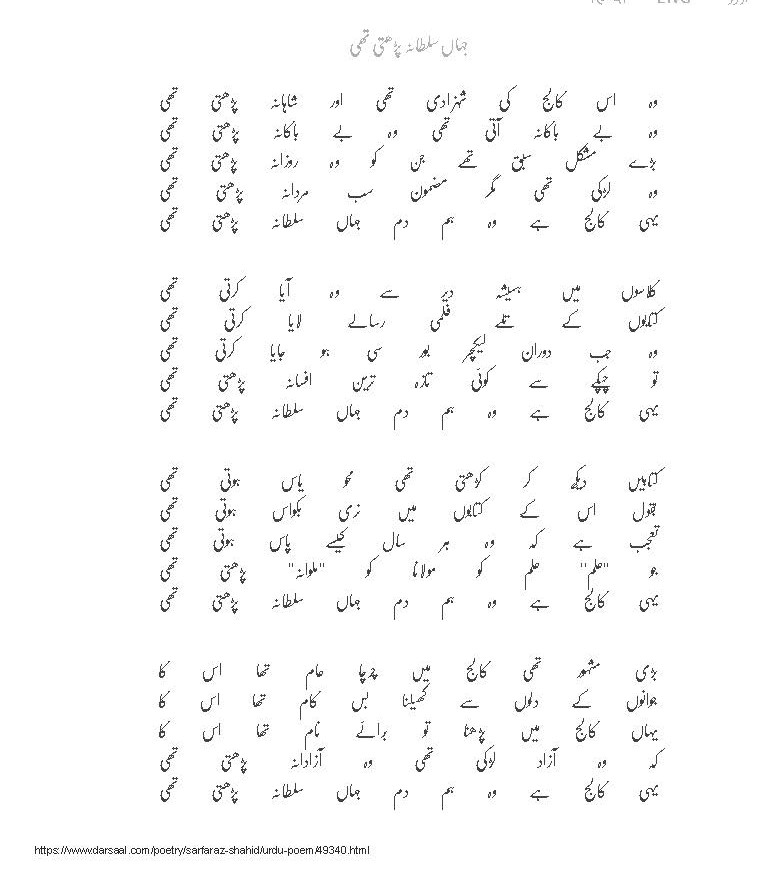 جہاں سلطانہ پڑھتی تھی
وہ اس کالج کی شہزادی تھی اور شاہانہ پڑھتی تھی
وہ بے باکانہ آتی تھی وہ بے باکانہ پڑھتی تھی
بڑے مشکل سبق تھے جن کو وہ روزانہ پڑھتی تھی
وہ لڑکی تھی مگر مضمون سب مردانہ پڑھتی تھی
یہی کالج ہے وہ ہم دم جہاں سلطانہ پڑھتی تھی
کلاسوں میں ہمیشہ دیر سے وہ آیا کرتی تھی
کتابوں کے تلے فلمی رسالے لایا کرتی تھی
وہ جب دوران لیکچر بور سی ہو جایا کرتی تھی
تو چپکے سے کوئی تازہ ترین افسانہ پڑھتی تھی
یہی کالج ہے وہ ہم دم جہاں سلطانہ پڑھتی تھی
کتابیں دیکھ کر کڑھتی تھی محو یاس ہوتی تھی
بقول اس کے کتابوں میں نری بکواس ہوتی تھی
تعجب ہے کہ وہ ہر سال کیسے پاس ہوتی تھی
جو "علم" علم کو مولانا کو "ملوانہ" پڑھتی تھی
یہی کالج ہے وہ ہم دم جہاں سلطانہ پڑھتی تھی
بڑی مشہور تھی کالج میں چرچا عام تھا اس کا
جوانوں کے دلوں سے کھیلنا بس کام تھا اس کا
یہاں کالج میں پڑھنا تو برائے نام تھا اس کا
کہ وہ آزاد لڑکی تھی وہ آزادانہ پڑھتی تھی
یہی کالج ہے وہ ہم دم جہاں سلطانہ پڑھتی تھی
https://www.darsaal.com/poetry/sarfaraz-shahid/urdu-poem/49340.html